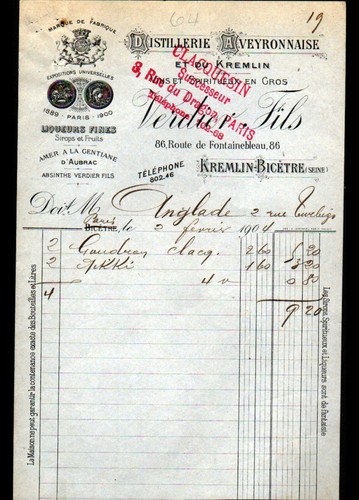 64
19
MARQUE DE FABRIQUE
EXPOSITIONS UNIVERSELLES
1889 - PARIS - 1900
LIQUEURS FINES
Sirops et Fruits
AMER A LA GENTIANE
D'AUBRAC
ABSINTHE VERDIER FILS
DISTILLERIE AVEYRONNAISE
ET DU KREMLIN
VINS ET SPIRITUEUX EN GROS
CLACQUESIN
Successeur
3, Rue du Dragon, PARIS
Téléphone
Verdier Fils
86, Route de Fontainebleau, 86
TÉLÉPHONE
802.46
KREMLIN-BICÊTRE (SEINE)
Doit M Anglade 2 rue Turbigo
Paris
BICÊTRE, le 2 février 1904
2 Goudron Clacq. 2 60 5 20
2 1 60 3 20
4 v 0 80
4
9 20
La Maison ne peut garantir la contenance exacte des Bouteilles et Litres
Les Sirops, Spiritueux et Liqueurs sont de fantaisie